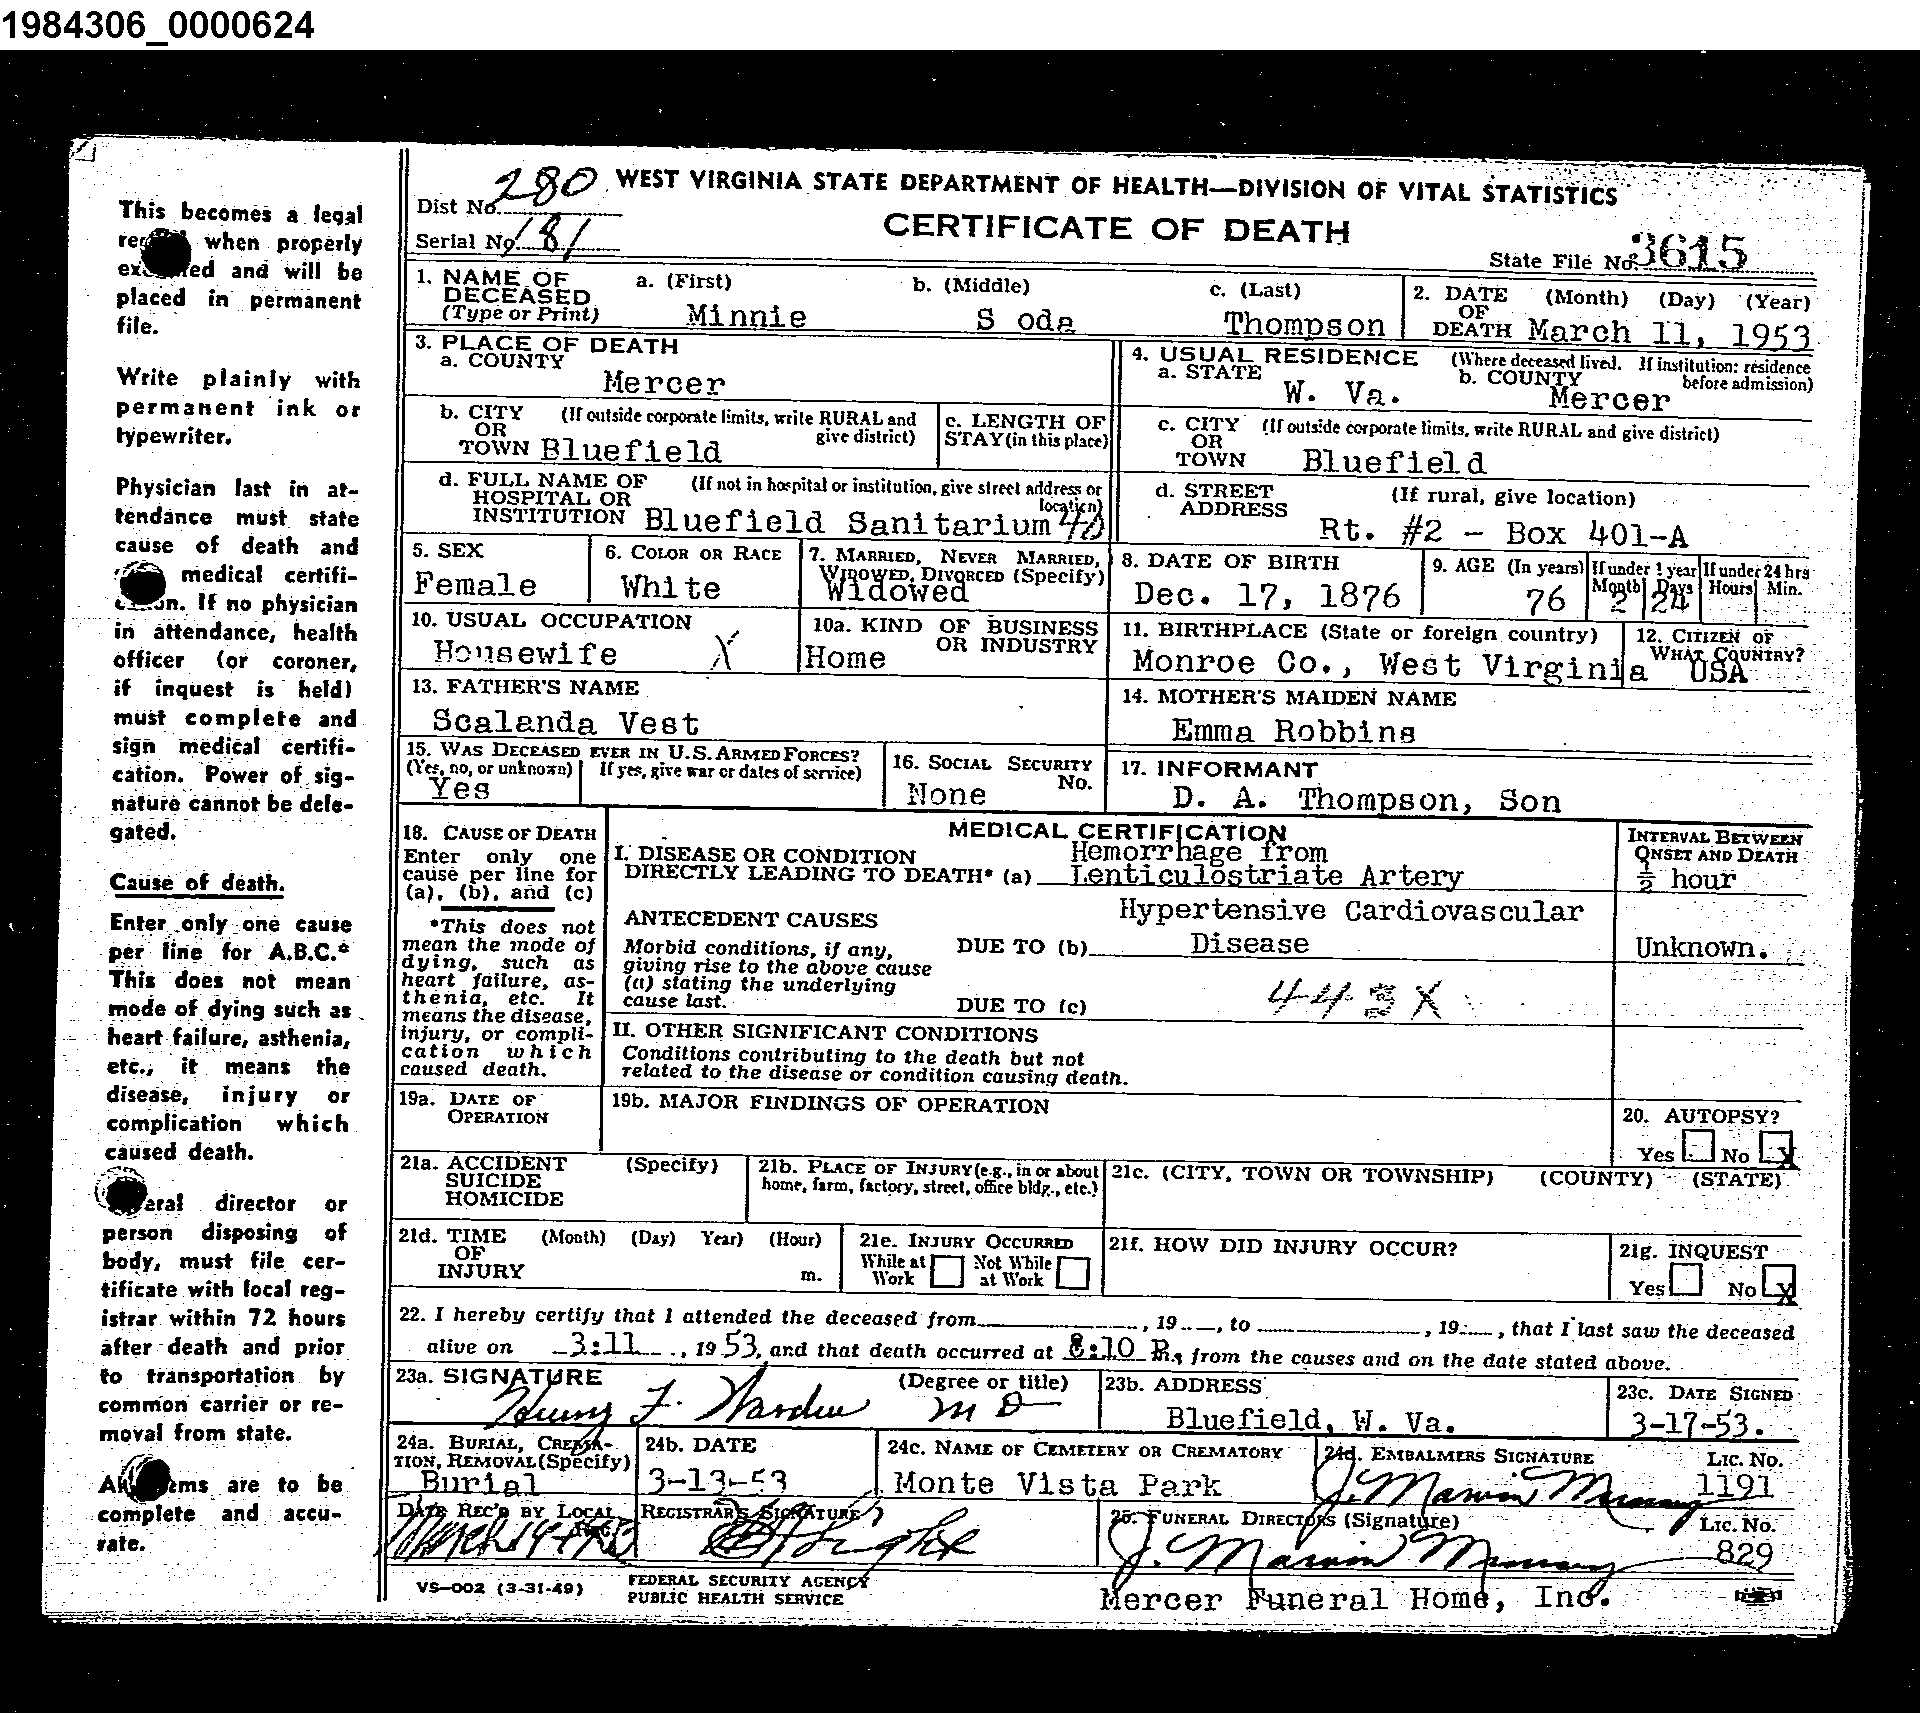 1984306_0000624
This becomes a legal
when properly
and will be
placed in permanent
file.
Write plainly with
permanent ink or
typewriter.
Physician last in at-
tendance must state
cause of death and
medical certifi-
If no physician
in attendance, health
officer (or coroner,
if inquest is held)
must complete and
sign medical certifi-
cation. Power of sig-
nature cannot be dele-
gated.
Cause of death.
Enter only one cause
per line for A.B.C.*
This does not mean
mode of dying such as
heart failure, asthenia,
etc., it means the
disease, injury or
complication which
caused death.
director or
person disposing of
body, must file cer-
tificate with local reg-
istrar within 72 hours
after death and prior
to transportation by
common carrier or re-
moval from state.
are to be
complete and accu-
rate.
Dist No. 280
Serial No. 181
WEST VIRGINIA STATE DEPARTMENT OF HEALTH—DIVISION OF VITAL STATISTICS
CERTIFICATE OF DEATH
State File No. 3615
1. NAME OF DECEASED (Type or Print) a. (First) b. (Middle) c. (Last)
Minnie S oda Thompson
2. DATE OF DEATH (Month) (Day) (Year)
March 11, 1953
3. PLACE OF DEATH
a. COUNTY
Mercer
4. USUAL RESIDENCE (Where deceased lived. If institution: residence before admission)
a. STATE b. COUNTY
W. Va. Mercer
b. CITY OR TOWN (If outside corporate limits, write RURAL and give district)
Bluefield
c. LENGTH OF STAY (in this place)
c. CITY OR TOWN (If outside corporate limits, write RURAL and give district)
Bluefield
d. FULL NAME OF HOSPITAL OR INSTITUTION (If not in hospital or institution, give street address or location)
Bluefield Sanitarium
d. STREET ADDRESS (If rural, give location)
Rt. #2 - Box 401-A
5. SEX
Female
6. COLOR OR RACE
White
7. MARRIED, NEVER MARRIED, WIDOWED, DIVORCED (Specify)
Widowed
8. DATE OF BIRTH
Dec. 17, 1876
9. AGE (In years) If under 1 year If under 24 hrs
Month Days Hours Min.
76 2 24
10. USUAL OCCUPATION
Housewife X
10a. KIND OF BUSINESS OR INDUSTRY
Home
11. BIRTHPLACE (State or foreign country)
Monroe Co., West Virginia
12. CITIZEN OF WHAT COUNTRY?
USA
13. FATHER'S NAME
Scalanda Vest
14. MOTHER'S MAIDEN NAME
Emma Robbins
15. WAS DECEASED EVER IN U.S. ARMED FORCES?
(Yes, no, or unknown) If yes, give war or dates of service)
Yes
16. SOCIAL SECURITY No.
None
17. INFORMANT
D. A. Thompson, Son
18. CAUSE OF DEATH
Enter only one
cause per line for
(a), (b), and (c)
*This does not
mean the mode of
dying, such as
heart failure, as-
thenia, etc. It
means the disease,
injury, or compli-
cation which
caused death.
MEDICAL CERTIFICATION
I. DISEASE OR CONDITION
DIRECTLY LEADING TO DEATH* (a)
Hemorrhage from
Lenticulostriate Artery
INTERVAL BETWEEN ONSET AND DEATH
½ hour
ANTECEDENT CAUSES
Morbid conditions, if any,
giving rise to the above cause
(a) stating the underlying
cause last.
DUE TO (b)
Hypertensive Cardiovascular
Disease
Unknown.
DUE TO (c)
443X
II. OTHER SIGNIFICANT CONDITIONS
Conditions contributing to the death but not
related to the disease or condition causing death.
19a. DATE OF OPERATION
19b. MAJOR FINDINGS OF OPERATION
20. AUTOPSY?
Yes No X
21a. ACCIDENT SUICIDE HOMICIDE (Specify)
21b. PLACE OF INJURY (e.g., in or about
home, farm, factory, street, office bldg., etc.)
21c. (CITY, TOWN OR TOWNSHIP) (COUNTY) (STATE)
21d. TIME OF INJURY (Month) (Day) Year) (Hour)
m.
21e. INJURY OCCURRED
While at Work Not While at Work
21f. HOW DID INJURY OCCUR?
21g. INQUEST
Yes No X
22. I hereby certify that I attended the deceased from , 19 , to , 19 , that I last saw the deceased
alive on 3:11 , 19 53, and that death occurred at 8:10 P., from the causes and on the date stated above.
23a. SIGNATURE (Degree or title)
Henry F. Warden M D
23b. ADDRESS
Bluefield, W. Va.
23c. DATE SIGNED
3-17-53.
24a. BURIAL, CREMA-
TION, REMOVAL (Specify)
Burial
24b. DATE
3-13-53
24c. NAME OF CEMETERY OR CREMATORY
Monte Vista Park
24d. EMBALMERS SIGNATURE LIC. NO.
J. Marvin 1191
DATE REC'D BY LOCAL
March
REGISTRAR'S SIGNATURE
25. FUNERAL DIRECTORS (Signature) LIC. NO.
J. Marvin 829
Mercer Funeral Home, Inc.
VS-002 (3-31-49)
FEDERAL SECURITY AGENCY
PUBLIC HEALTH SERVICE